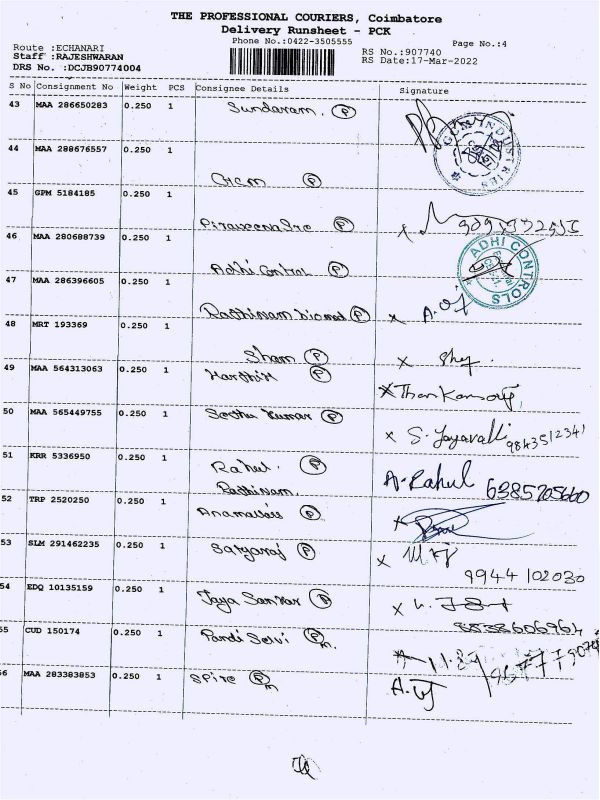 THE PROFESSIONAL COURIERS, Coimbatore
Delivery Runsheet - PCK
Phone No.:0422-3505555
Page No.:4
Route :ECHANARI
Staff :RAJESHWARAN
DRS No. :DCJB90774004
RS No.:907740
RS Date:17-Mar-2022
S No Consignment No Weight PCS Consignee Details Signature
43 MAA 286650283 0.250 1 Sundaram. P
GEM INDUSTRIES
44 MAA 288676557 0.250 1
Gem P
45 GPM 5184185 0.250 1
P
46 MAA 280688739 0.250 1 Adhi Control P
ADHI CONTROLS
47 MAA 286396605 0.250 1
Rathinam P x
48 MRT 193369 0.250 1
Sham P x
49 MAA 564313063 0.250 1 Harshit P x
50 MAA 565449755 0.250 1 Sethu Kumar P
x S. Jayavalli 9843512341
51 KRR 5336950 0.250 1
Rahul. P A. Rahul 6385705660
52 TRP 2520250 0.250 1 Rathinam.
P x
53 SLM 291462235 0.250 1 Satyaraj P x
9944102030
54 EDQ 10135159 0.250 1
Jaya Sankar P x
8838606964
55 CUD 150174 0.250 1 Pandi Selvi P
56 MAA 283383853 0.250 1 Spire P